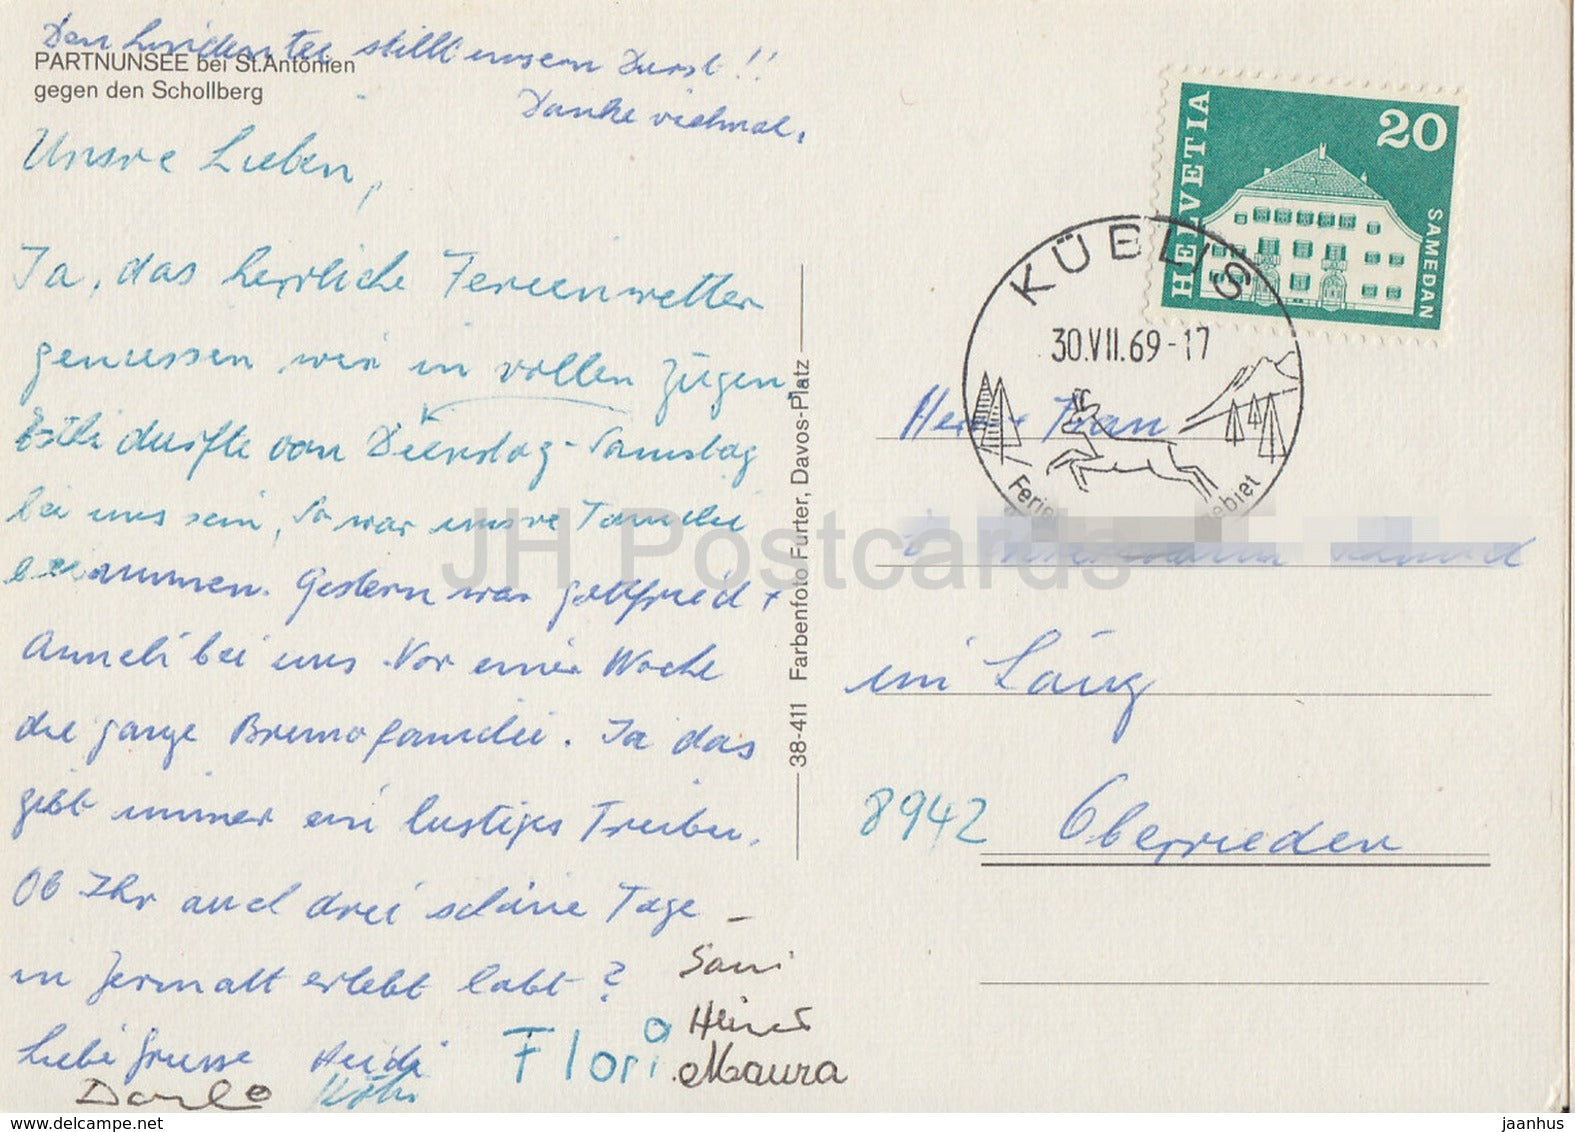 Den Lindentee stillt unsern Durst!!
Danke vielmal.
PARTNUNSEE bei St.Antönien
gegen den Schollberg
Unsre Lieben,
Ja, das herrliche Ferienwetter
geniessen wir in vollen Zügen,
Esthi durfte von Dienstag-Samstag
bei uns sein, So war unsre Familie
beisammen. Gestern war Gottfried +
Anneli bei uns. Vor einer Woche
die ganze Brunofamilie. Ja das
gibt immer ein lustiges Treiben.
Ob Ihr auch drei schöne Tage –
in Zermatt erlebt habt?
Liebi Grüsse Heidi
Flori
Heinz
Maura
38-411 Farbenfoto Furter, Davos-Platz
HELVETIA
20
SAMEDAN
KÜBLIS
30.VII.69-17
Herr + Frau
im Läng
8942 Oberrieden
JH Postcards
jaanhus